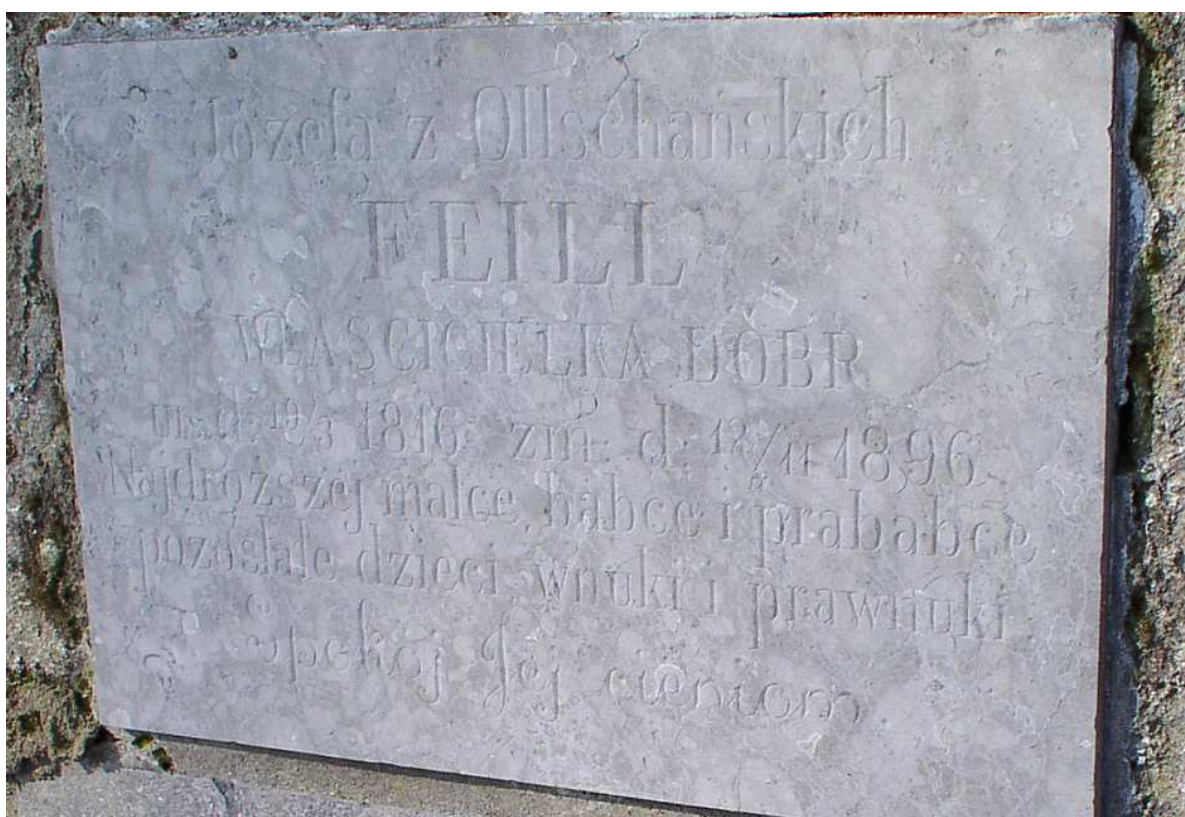 Józefa z Ollschanskich
FEILL
WŁAŚCICIELKA DÓBR
ur. d. 19/3 1816 zm. d. 18/11 1896
Najdroższej matce, babce i prababce
pozostałe dzieci, wnuki i prawnuki
spokój Jej cieniom